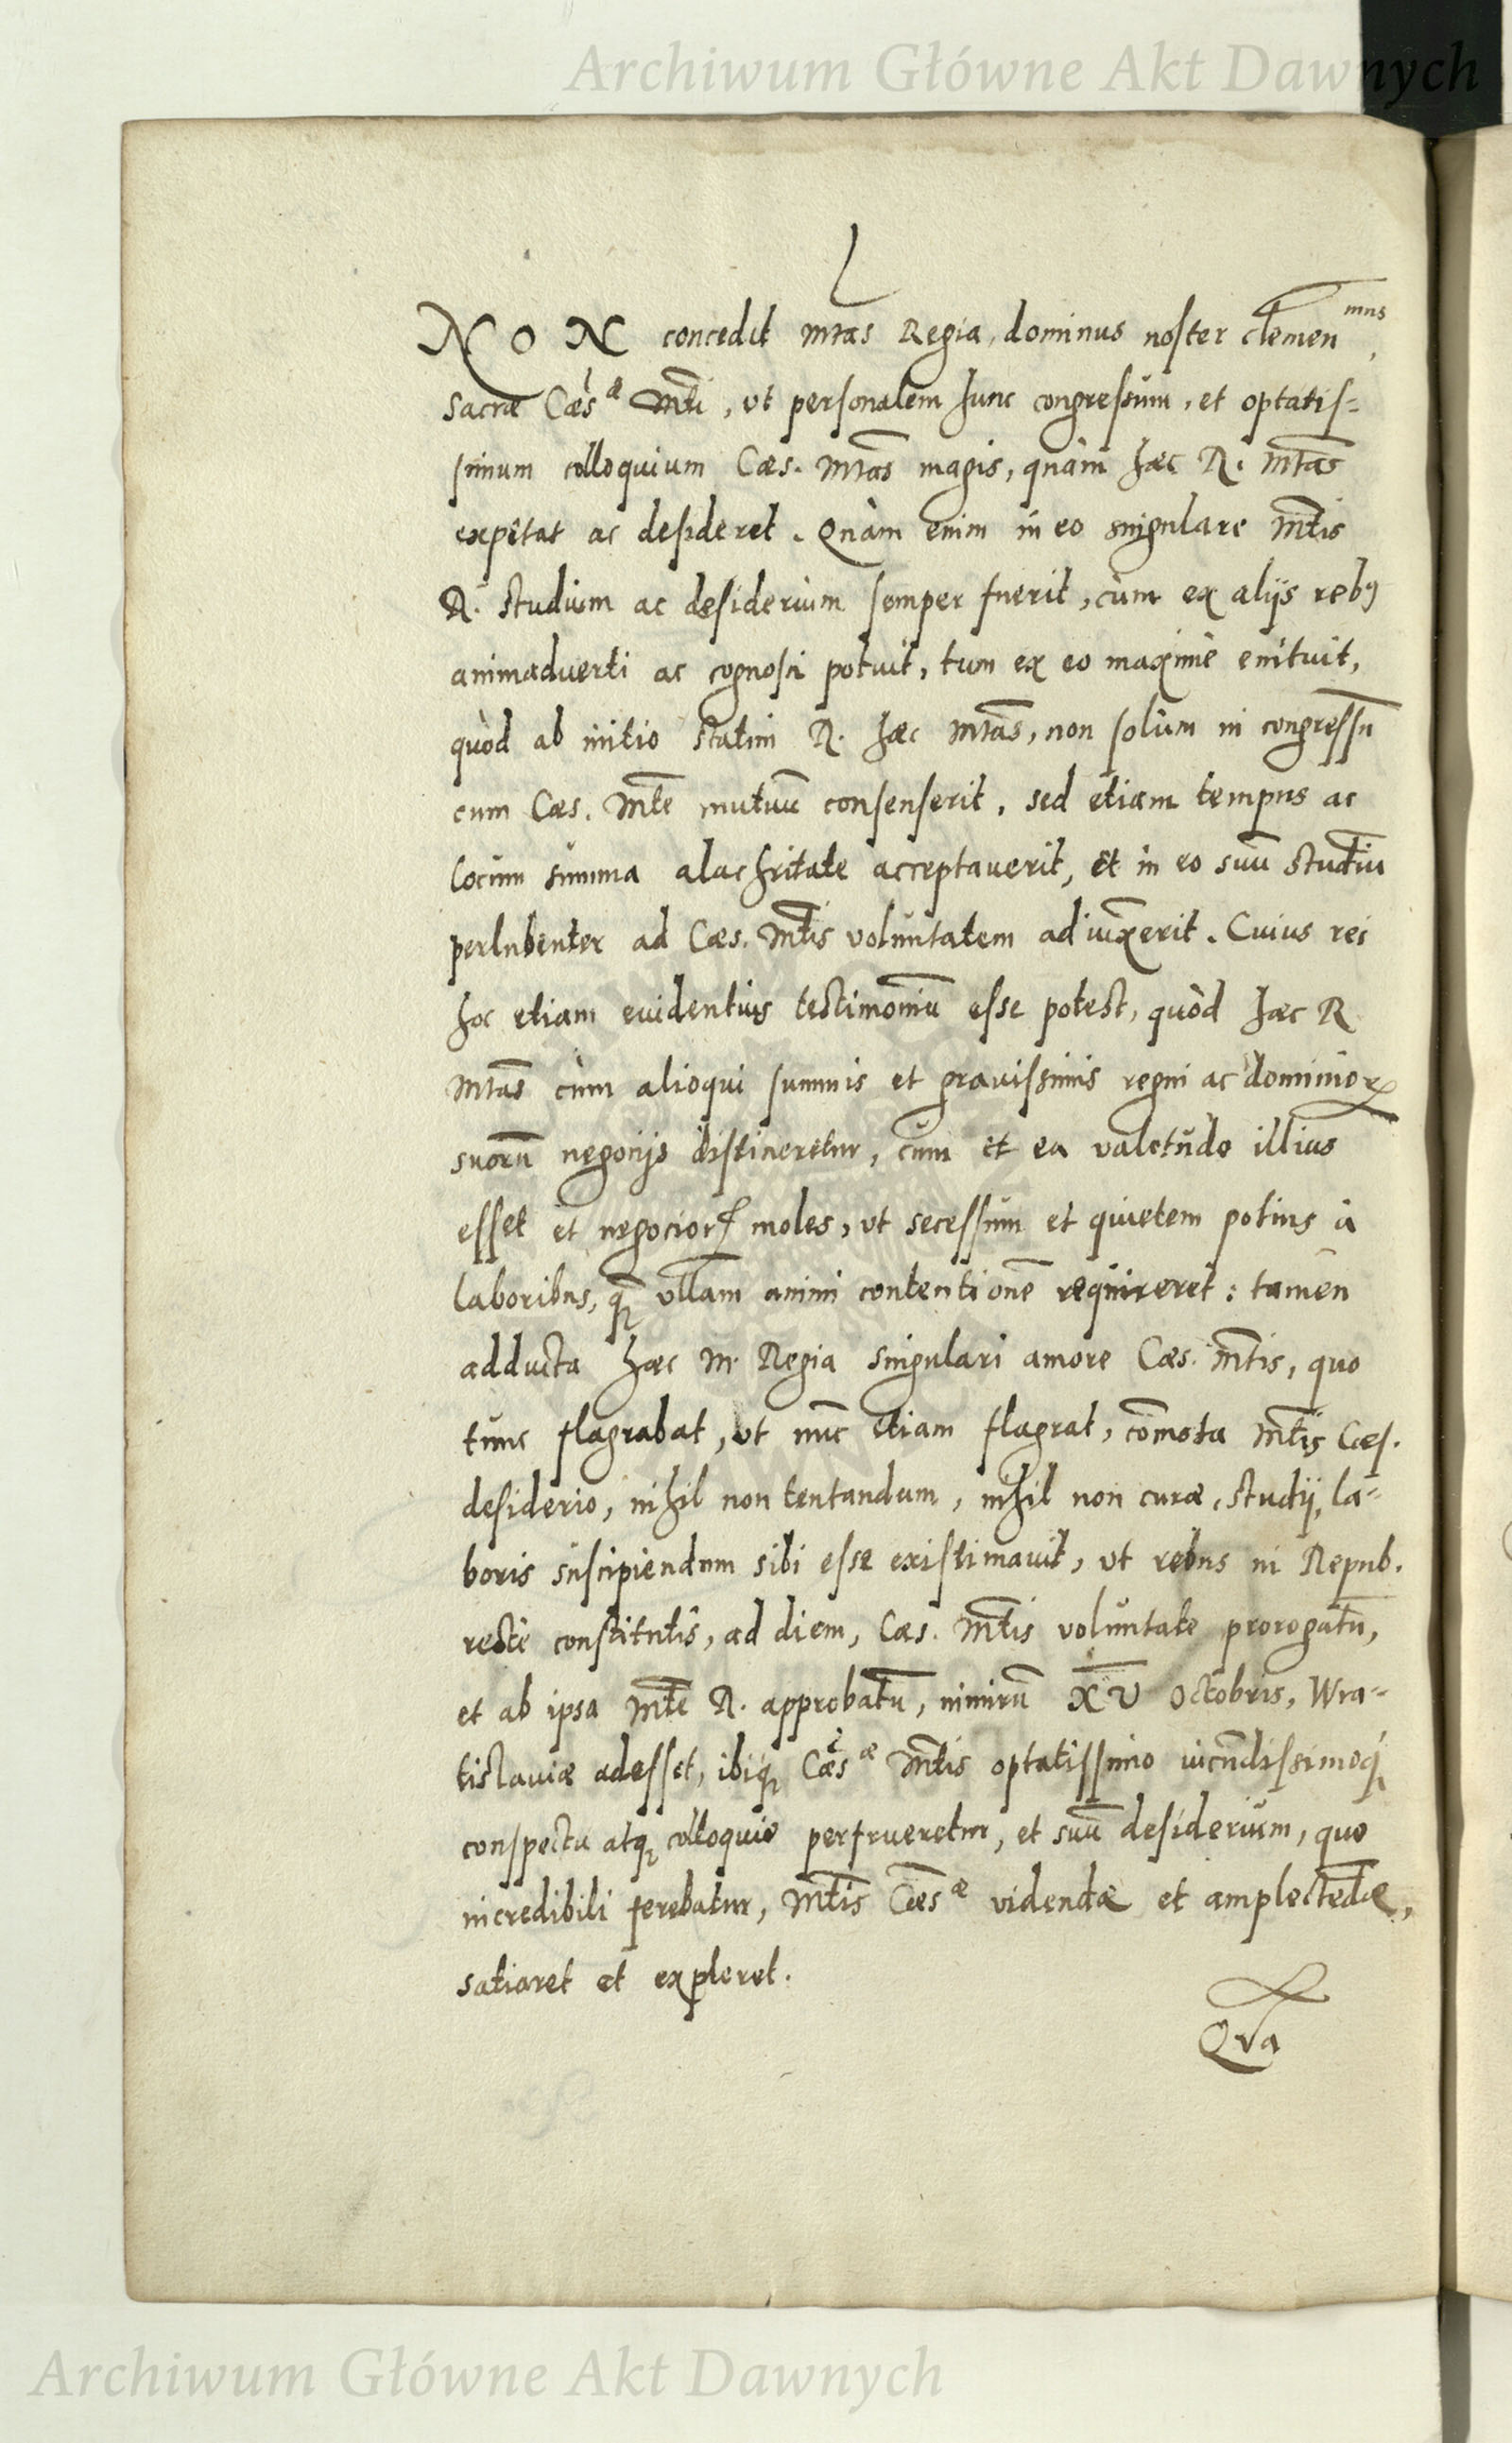 Archiwum Główne Akt Dawnych
NON concedit Mtas Regia, dominus noster clemen^mus,
Sacræ Cæs^æ Mti, ut personalem hunc congressum, et optatis-
simum colloquium Cæs. Mtas magis, quàm hæc R. Mtas
expetat ac desideret. Quàm enim in eo singulare Mtis
R. studium ac desiderium semper fuerit, cùm ex alijs rebꝰ
animaduerti ac cognosci potuit, tum ex eo maximè enituit,
quòd ab initio statim R. hæc Mtas, non solùm in congressū
cum Cæs. Mte mutuū consenserit, sed etiam tempus ac
locum summa alachritate acceptauerit, et in eo suū studiū
perlubenter ad Cæs. Mtis voluntatem adiunxerit. Cuius rei
hoc etiam euidentius testimoniū esse potest, quòd hæc R
Mtas cùm alioqui summis et grauissimis regni ac dominioꝝ
suorū negocijs distineretur, cùm et ea valetudo illius
esset et negocioꝝ moles, ut secessum et quietem potius à
laboribus, q̃ꝫ ullam animi contentionē requireret: tamen
adducta hæc M. Regia singulari amore Cæs. Mtis, quo
tunc flagrabat, ut nūc etiam flagrat, com̄ota Mtis Cæs.
desiderio, nihil non tentandum, nihil non curæ, studij, la-
boris suscipiendum sibi esse existimauit, ut rebus in Repub.
rectè constitutis, ad diem, Cæs. Mtis voluntate prorogatū,
et ab ipsa Mte R. approbatū, nimirū XV Octobris, Wra-
tislauiæ adesset, ibiqꝫ Cæs^æ Mtis optatissimo iucūdissimoqꝫ
conspectu atqꝫ colloquio perfrueretur, et suū desiderium, quo
incredibili ferebatur, Mtis Cæs^æ videndæ et amplectēdæ,
satiaret et expleret.
Qva
Archiwum Główne Akt Dawnych